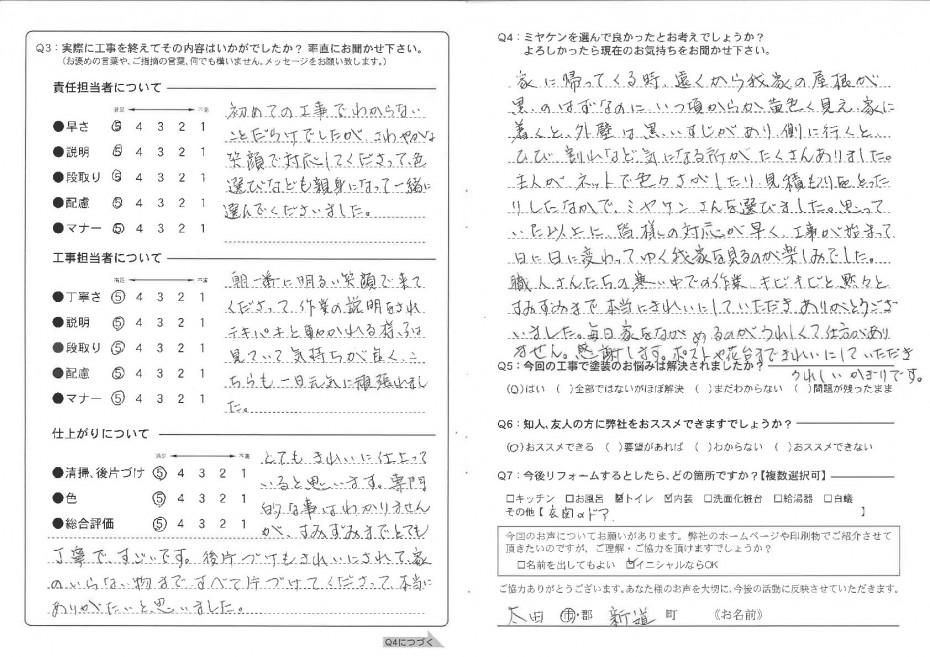 Q3：実際に工事を終えてその内容はいかがでしたか？ 率直にお聞かせ下さい。
（お褒めの言葉や、ご指摘の言葉、何でも構いません、メッセージをお願い致します。）
責任担当者について
満足 不満
●早さ ⑤ 4 3 2 1
●説明 ⑤ 4 3 2 1
●段取り ⑤ 4 3 2 1
●配慮 ⑤ 4 3 2 1
●マナー ⑤ 4 3 2 1
初めての工事でわからない
ことだらけでしたが、さわやかな
笑顔で対応してくださって、色
選びなども親身になって一緒に
選んでくださいました。
工事担当者について
満足 不満
●丁寧さ ⑤ 4 3 2 1
●説明 ⑤ 4 3 2 1
●段取り ⑤ 4 3 2 1
●配慮 ⑤ 4 3 2 1
●マナー ⑤ 4 3 2 1
朝一番に明るい笑顔で来て
くださって、作業の説明をされ
テキパキと動かれる様子は
見ていて気持ちが良く、こ
ちらも一日元気に頑張れまし
た。
仕上がりについて
満足 不満
●清掃、後片づけ ⑤ 4 3 2 1
●色 ⑤ 4 3 2 1
●総合評価 ⑤ 4 3 2 1
とてもきれいに仕上って
いると思います。専門
的な事はわかりません
が、すみずみまでとても
丁寧で、すごいです。後片づけもきれいにされて、家
のいらない物まですべて片づけてくださって、本当に
ありがたいと思いました。
Q4につづく
Q4：ミヤケンを選んで良かったとお考えでしょうか？
よろしかったら現在のお気持ちをお聞かせ下さい。
家に帰ってくる時、遠くから我家の屋根が
黒のはずなのに、いつ頃からか黄色く見え、家に
着くと、外壁は黒いすじがあり、側に行くと、
ひび割れなど気になる所がたくさんありました。
主人がネットで色々さがしたり、見積もりをとった
りしたなかで、ミヤケンさんを選びました。思って
いた以上に、皆様の対応が早く、工事が始まって
日に日に変わってゆく我家を見るのが楽しみでした。
職人さんたちの寒い中での作業、キビキビと黙々と
すみずみまで本当にきれいにしていただきありがとうござ
いました。毎日家をながめるのがうれしくて仕方があり
ません。感謝します。ポストや花台まできれいにしていただき
うれしいかぎりです。
Q5：今回の工事で塗装のお悩みは解決されましたか？
(○)はい ( )全部ではないがほぼ解決 ( )まだわからない ( )問題が残ったまま
Q6：知人、友人の方に弊社をおススメできますでしょうか？
(○)おススメできる ( )要望があれば ( )わからない ( )おススメできない
Q7：今後リフォームするとしたら、どの箇所ですか？【複数選択可】
□キッチン □お風呂 ☑トイレ ☑内装 □洗面化粧台 □給湯器 □白蟻
その他【 玄関のドア 】
今回のお声についてお願いがあります。弊社のホームページや印刷物でご紹介させて
頂きたいのですが、ご理解・ご協力を頂けますでしょうか？
□名前を出してもよい ☑イニシャルならOK
ご協力ありがとうございます。あなた様のお声を大切に、今後の活動に反映させていただきます。
太田 ㊍市・郡 新道 町 《お名前》